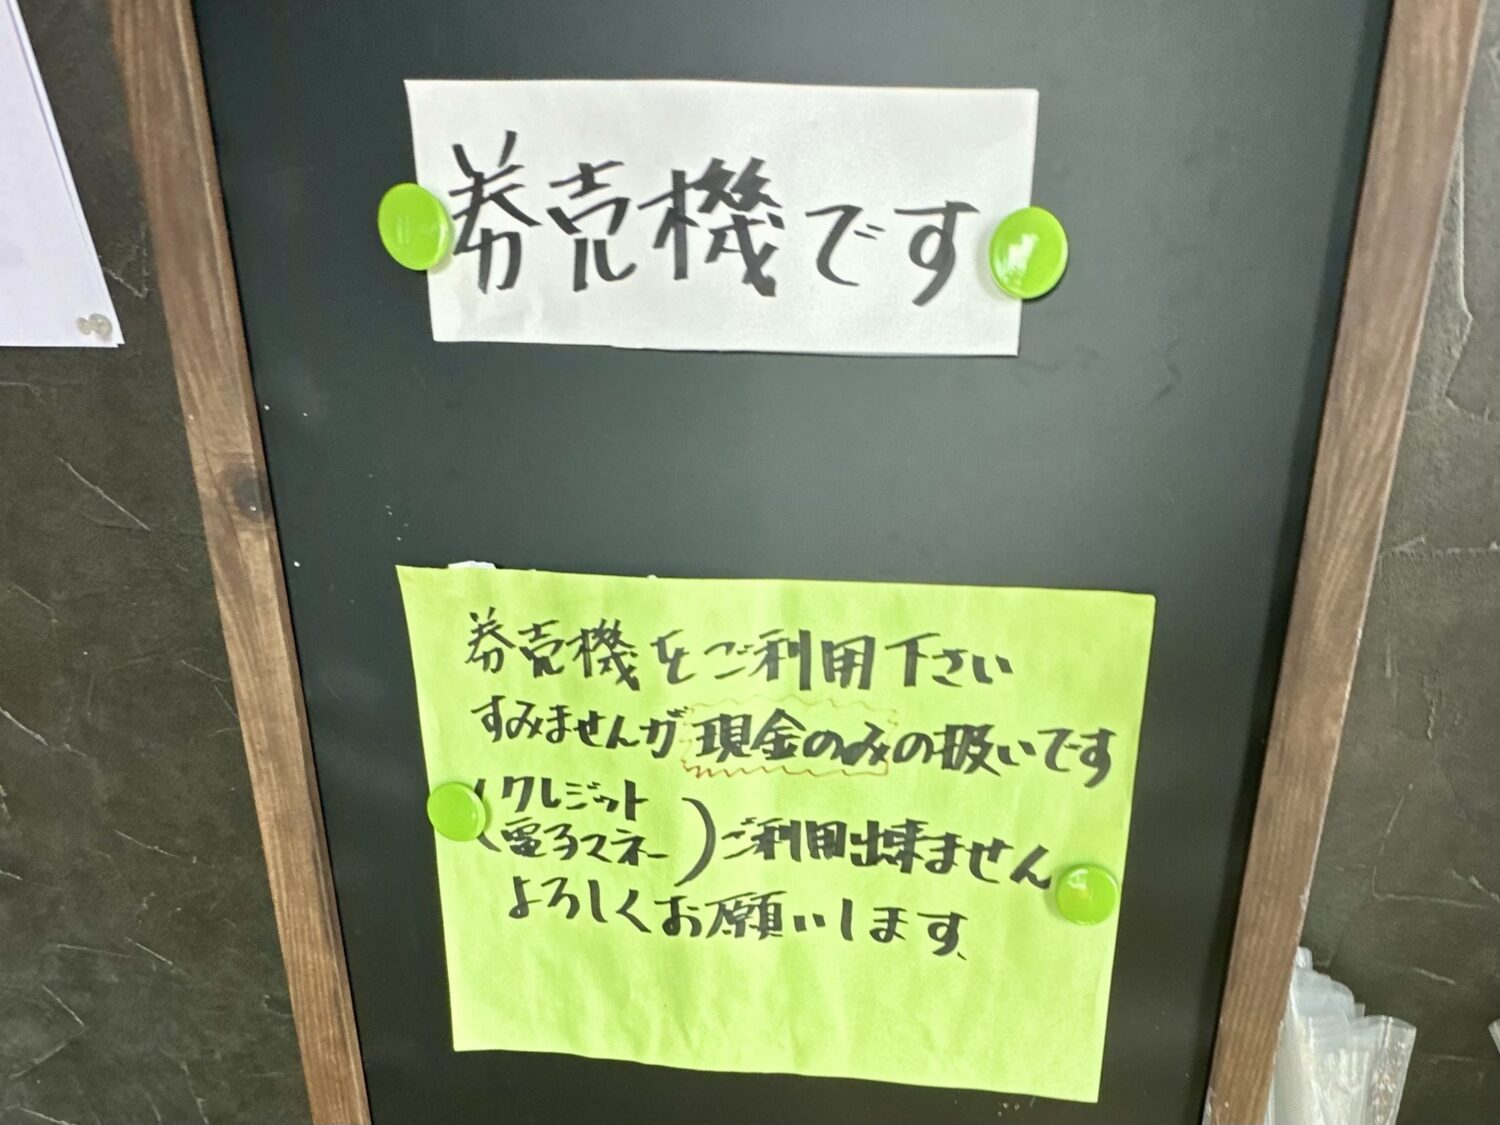 券売機です
券売機をご利用下さい
すみませんが現金のみの扱いです
(クレジット
電子マネー)ご利用出来ません
よろしくお願いします、